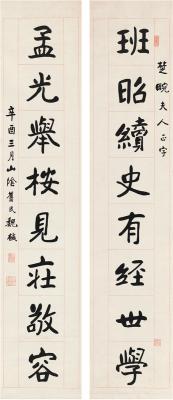 楚畹夫人正字
班昭續史有經世學
孟光舉桉見莊敬容
辛酉三月山陰舊民魏戫